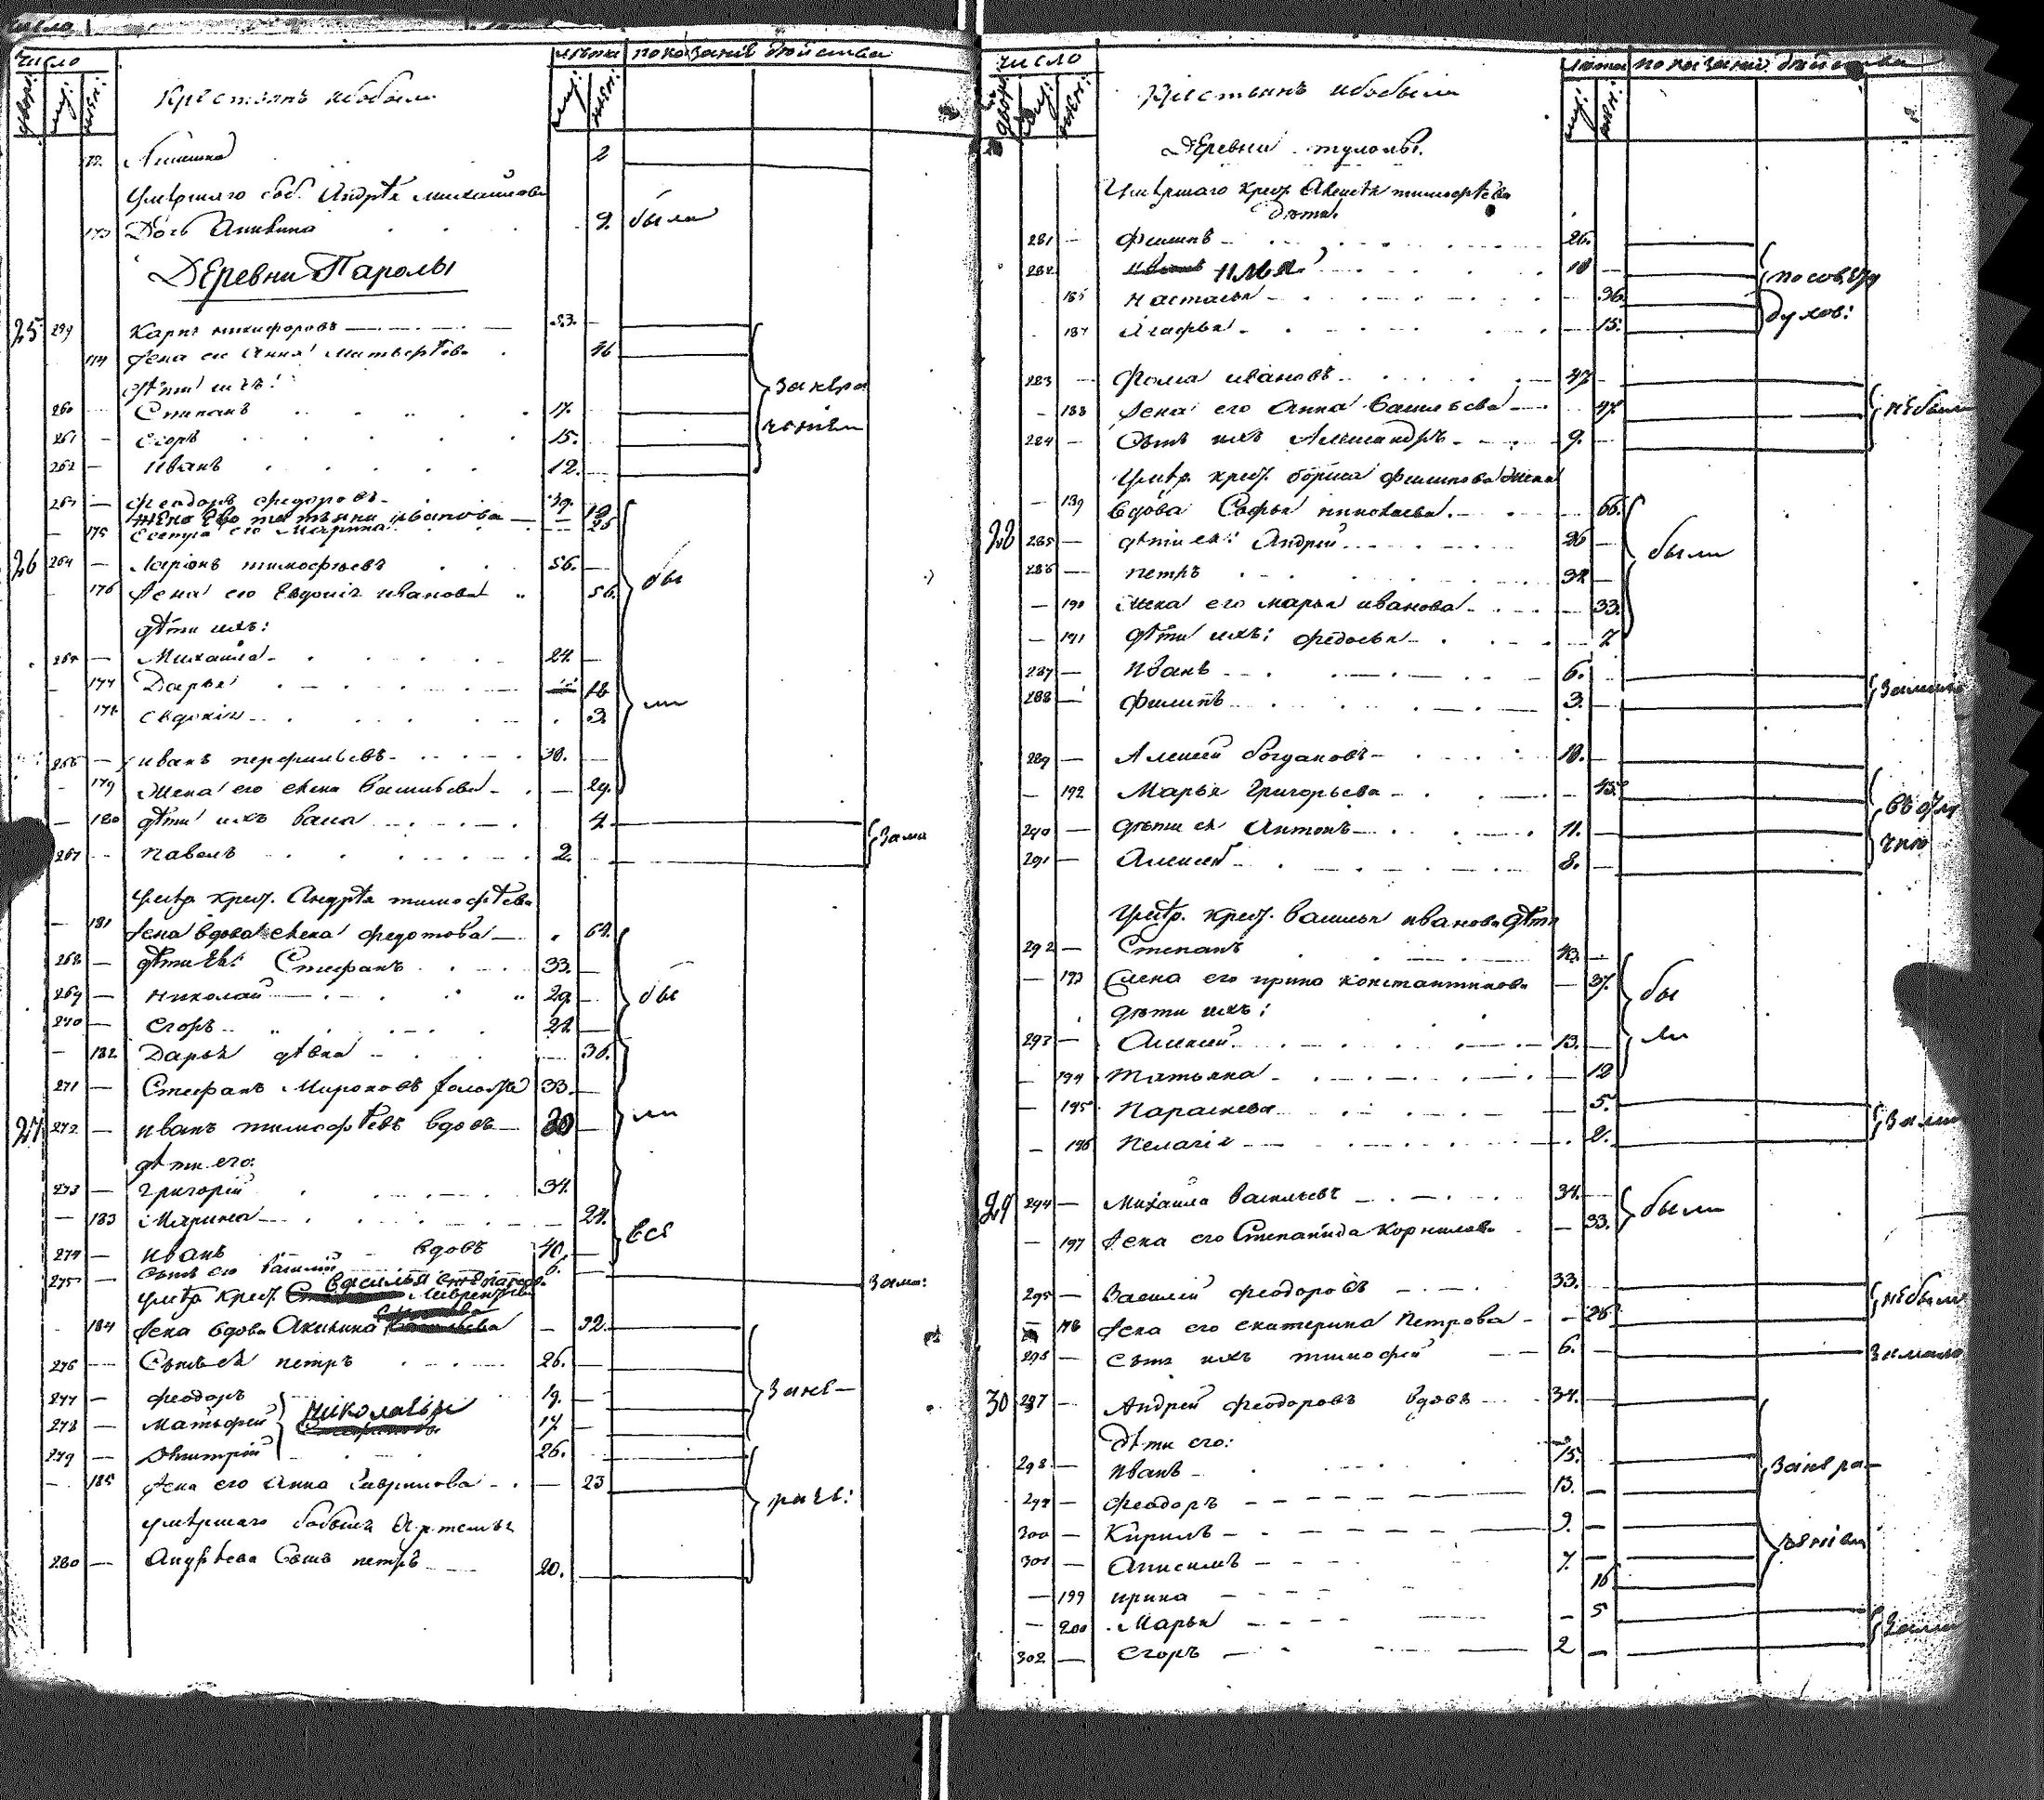 число
Крестьянъ и бобыли
лѣта показаніе дѣйства
172 2
умершаго боб. Андрѣя михаилова
173 Дочь Акилина 9. были
Деревни Паролы
25 259 Карпъ никифоровъ 53.
174 Жена ея Анна Матвѣева 46
дѣти ихъ:
260 Степанъ 17.
261 Егоръ 15.
262 Иванъ 12.
263 Феодоръ федоровъ 39.
жена Его татьяна Иванова
175 Сестра его Марина 25
26 264 Ларіонъ тимофѣевъ 56.
176 Жена его Евдокія иванова 56.
дѣти ихъ:
265 Михаила 24.
177 Дарья 18
178 Евдокія 3.
266 иванъ перфильевъ 30.
179 Жена его елена васильева 29.
180 дѣти ихъ васса 4.
267 Павелъ 2.
умер. крес. Андрѣя тимофѣева
181 Жена вдова елена федотова 62.
268 дѣти Ев: Стефанъ 33.
269 Николай 29.
270 Егоръ 22.
182 Дарья дѣвка 30.
271 Стефанъ Мироновъ 33.
27 272 иванъ тимофѣевъ вдовъ 30
дѣти его:
273 Григорій 34.
183 Марина 24.
274 иванъ вдовъ 40.
275 сынъ его Василій 6.
умер. крес. василья степанова
184 Жена вдова Акилина 52.
276 Сынъ ея петръ 26.
277 феодоръ 19.
278 Матѳей Николаевы 17.
279 Дмитрій 26.
185 Жена его Анна Гаврилова 23
умершаго бобыля Артемья
280 Андрѣева Сынъ петръ 20.
число
Крестьянъ и бобыли
лѣта показаніе дѣйства
Деревни туломы.
Умершаго крес. Алексѣя тимофѣева
дѣти.
281 Филипъ 26.
282 Илья 18
186 Настасья 36.
187 Агафья 15.
283 Фома ивановъ 47
188 Жена его Анна Васильева 47.
284 Сынъ ихъ Александръ 9.
умер. крес. бориса филипова жена
189 вдова Софья николаева. 66.
28 285 дѣти ея: Андрей 36
286 петръ 32
190 жена его марья иванова 33.
191 дѣти ихъ: федосья 7
287 Иванъ 6.
288 Филипъ 3.
289 Алексѣй богдановъ 18.
192 Марья Григорьева 45.
290 дѣти ея Антонъ 11.
291 Алексѣй 8.
умер. крес. василья иванова дѣти
292 Степанъ 43.
193 Жена его ирина константинова 37.
дѣти ихъ:
293 Алексѣй 13.
194 татьяна 12
195 Параскева 5.
196 Пелагія 2.
29 294 Михаила васильевъ 34.
197 Жена его Степанида Корнилова 33.
295 Василей феодоровъ 33.
198 Жена его екатерина Петрова 26
296 сынъ ихъ тимофей 6.
30 297 Андрей феодоровъ вдовъ 34.
дѣти его:
298 Иванъ 15.
299 феодоръ 13.
300 Кирилъ 9.
301 Анисимъ 7.
199 ирина 16
200 Марья 5
302 Егоръ 2